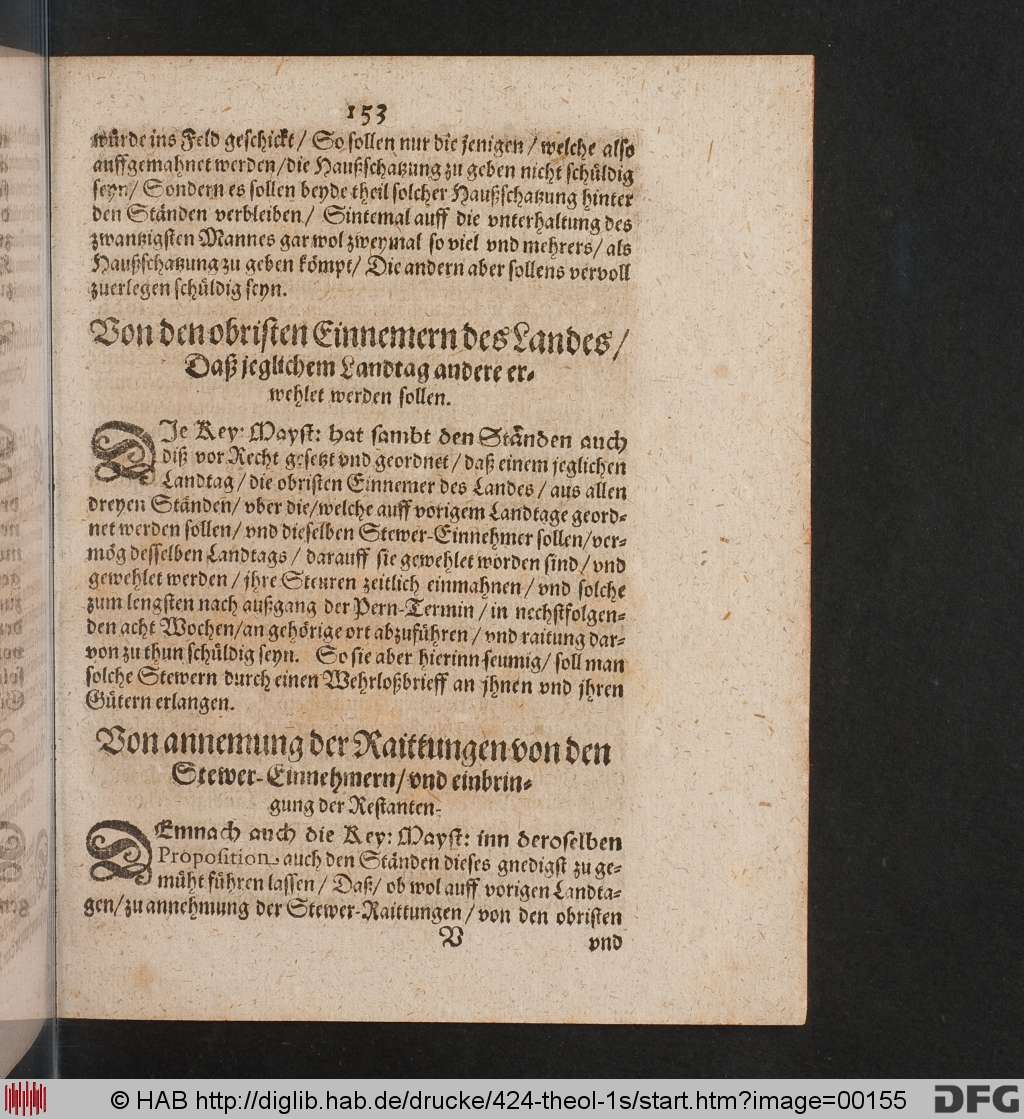 153
würde ins Feld geschickt / So sollen nur die jenigen / welche also
auffgemahnet werden / die Haußschatzung zu geben nicht schüldig
seyn / Sondern es sollen beyde theil solcher Haußschatzung hinter
den Ständen verbleiben / Sintemal auff die vnterhaltung des
zwantzigsten Mannes gar wol zweymal so viel vnd mehrers / als
Haußschatzung zu geben kömpt / Die andern aber sollens vervoll
zuerlegen schüldig seyn.
Von den obristen Einnemern des Landes /
Daß jeglichem Landtag andere er-
wehlet werden sollen.
DIe Key: Mayst: hat sambt den Ständen auch
diß vor Recht gesetzt vnd geordnet / daß einem jeglichen
Landtag / die obristen Einnemer des Landes / aus allen
dreyen Ständen / vber die / welche auff vorigem Landtage geord-
net werden sollen / vnd dieselben Stewer-Einnehmer sollen / ver-
mög desselben Landtags / darauff sie gewehlet worden sind / vnd
gewehlet werden / jhre Steuren zeitlich einmahnen / vnd solche
zum lengsten nach außgang der Pern-Termin / in nechstfolgen-
den acht Wochen / an gehörige ort abzuführen / vnd raitung dar-
von zu thun schüldig seyn. So sie aber hierinn seumig / soll man
solche Stewern durch einen Wehrloßbrieff an jhnen vnd jhren
Gütern erlangen.
Von annemung der Raittungen von den
Stewer-Einnehmern / vnd einbrin-
gung der Restanten.
DEmnach auch die Key: Mayst: inn deroselben
Proposition, auch den Ständen dieses gnedigst zu ge-
müht führen lassen / Daß / ob wol auff vorigen Landta-
gen / zu annehmung der Stewer-Raittungen / von den obristen
V vnd
© HAB http://diglib.hab.de/drucke/424-theol-1s/start.htm?image=00155
DFG